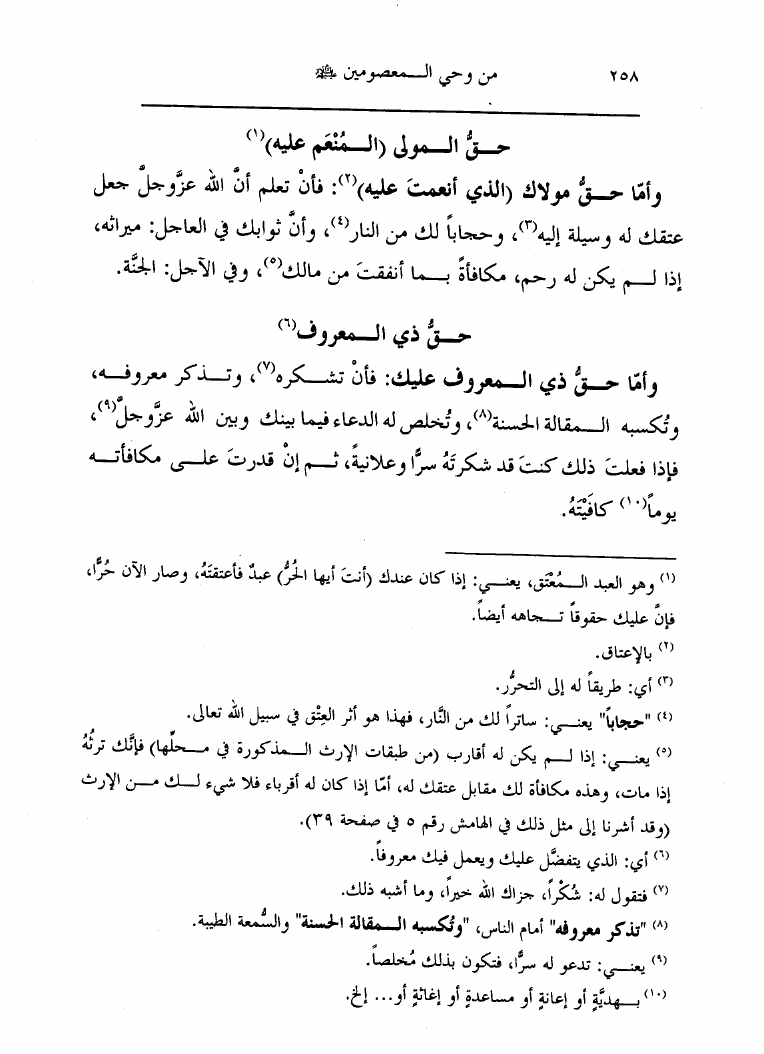 ٢٥٨ من وحي المعصومين ﷺ
حقُّ المولى (المُنْعَم عليه)(١)
وأمّا حقُّ مولاك (الذي أنعمتَ عليه)(٢): فأنْ تعلم أنَّ الله عزَّوجلَّ جعل
عتقك له وسيلة إليه(٣)، وحجاباً لك من النار(٤)، وأنَّ ثوابك في العاجل: ميراثه،
إذا لم يكن له رحم، مكافأةً بما أنفقتَ من مالك(٥)، وفي الآجل: الجنَّة.
حقُّ ذي المعروف(٦)
وأمّا حقُّ ذي المعروف عليك: فأنْ تشكره(٧)، وتذكر معروفه،
وتُكسبه المقالة الحسنة(٨)، وتُخلص له الدعاء فيما بينك وبين الله عزَّوجلَّ(٩)،
فإذا فعلتَ ذلك كنتَ قد شكرتَهُ سرًّا وعلانيةً، ثم إنْ قدرتَ على مكافأته
يوماً(١٠) كافَيْتَهُ.
(١) وهو العبد المُعْتَق، يعني: إذا كان عندك (أنتَ أيها الحُرُّ) عبدٌ فأعتقتَهُ، وصار الآن حُرًّا،
فإنَّ عليك حقوقاً تجاهه أيضاً.
(٢) بالإعتاق.
(٣) أي: طريقاً له إلى التحرُّر.
(٤) "حجاباً" يعني: ساتراً لك من النَّار، فهذا هو أثر العِتْق في سبيل الله تعالى.
(٥) يعني: إذا لم يكن له أقارب (من طبقات الإرث المذكورة في محلِّها) فإنَّك ترثُهُ
إذا مات، وهذه مكافأة لك مقابل عتقك له، أمّا إذا كان له أقرباء فلا شيء لك من الإرث
(وقد أشرنا إلى مثل ذلك في الهامش رقم ٥ في صفحة ٣٩).
(٦) أي: الذي يتفضَّل عليك ويعمل فيك معروفاً.
(٧) فتقول له: شُكْراً، جزاك الله خيراً، وما أشبه ذلك.
(٨) "تذكر معروفه" أمام الناس، "وتُكسبه المقالة الحسنة" والسُّمعة الطيبة.
(٩) يعني: تدعو له سرًّا، فتكون بذلك مُخلصاً.
(١٠) بهديَّةٍ أو إعانةٍ أو مساعدةٍ أو إغاثةٍ أو... إلخ.